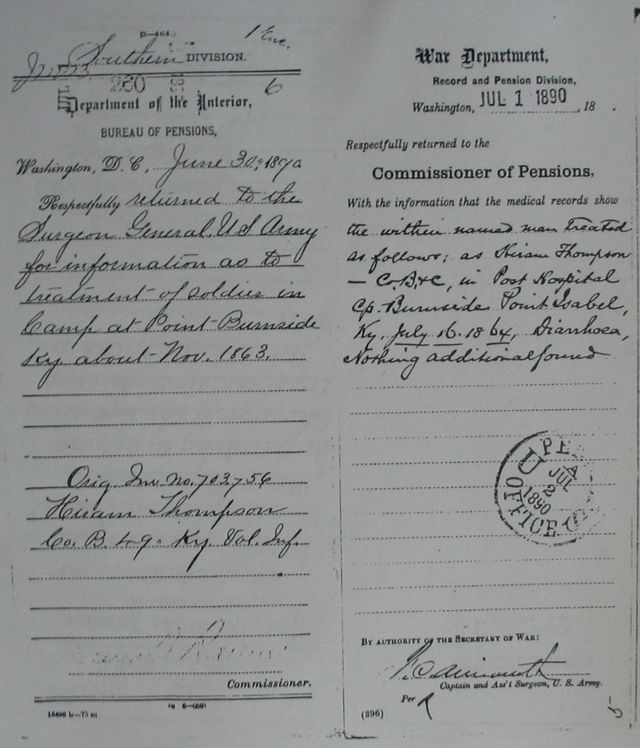 1 Enc.
Southern DIVISION.
6
Department of the Interior,
BUREAU OF PENSIONS,
Washington, D. C., June 30, 1890
Respectfully returned to the
Surgeon General, U S Army
for information as to
treatment of soldier in
Camp at Point Burnside
Ky about Nov. 1863.
Orig. Inv. no. 703,756
Hiram Thompson
Co. B. 49" Ky. Vol. Inf.
Commissioner.
War Department,
Record and Pension Division,
Washington, JUL 1 1890, 18 .
Respectfully returned to the
Commissioner of Pensions,
With the information that the medical records show
the within named man treated
as follows; as Hiram Thompson
— Co. B&C, in Post Hospital
Cp. Burnside Point Isabel,
Ky, July 16. 1864, Diarrhoea,
Nothing additional found
JUL
2
1890
OFFICE
BY AUTHORITY OF THE SECRETARY OF WAR:
Captain and Ass't Surgeon, U. S. Army.
Per
(396)